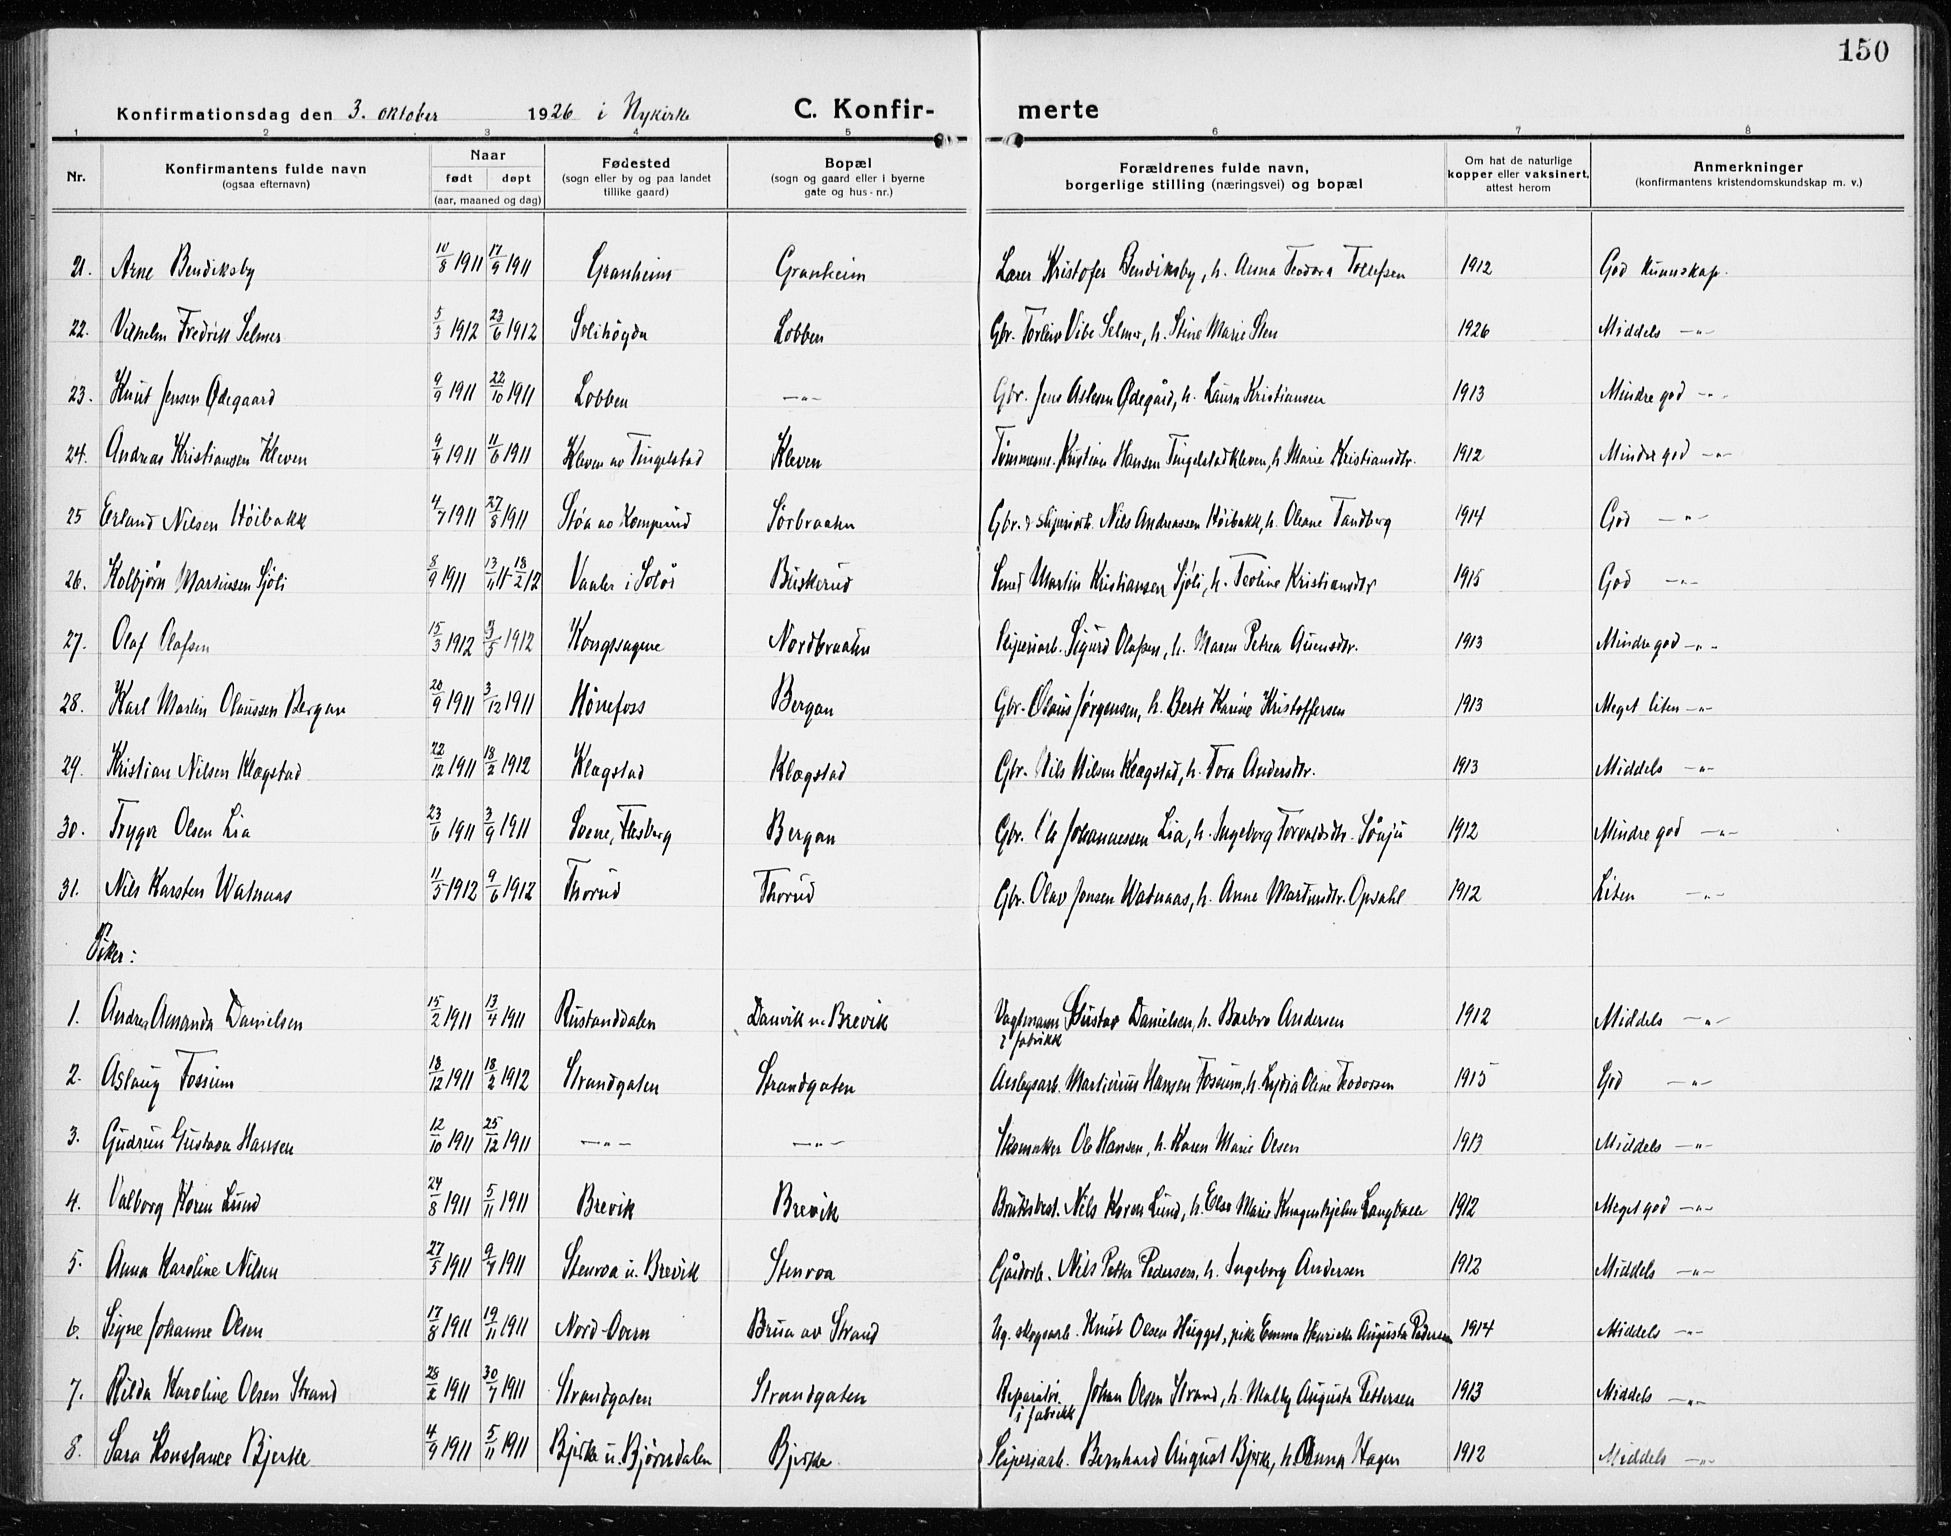 150
Konfirmationsdag den 3. oktober 1926 i Nykirke C. Konfir- merte
1 2 3 4 5 6 7 8
Nr. Konfirmantens fulde navn (ogsaa efternavn) Naar født døpt (aar, maaned og dag) Fødested (sogn eller by og paa landet tillike gaard) Bopæl (sogn og gaard eller i byerne gate og hus-nr.) Forældrenes fulde navn, borgerlige stilling (næringsvei) og bopæl Om hat de naturlige kopper eller vaksinert, attest herom Anmerkninger (konfirmantens kristendomskundskap m. v.)
21. Arne Bendiksby 10/8 1911 17/9 1911 Granheim Granheim Lærer Kristofer Bendiksby, h. Anna Teodora Tollefsen 1912 God kunnskap.
22. Vilhelm Fredrik Selmer 5/3 1912 23/6 1912 Solihøgda Lobben Gbr. Torleiv Vibe Selmer, h. Stine Marie Sten 1926 Middels -"-
23. Knut Jensen Ødegaard 9/9 1911 22/10 1911 Lobben -"- Gbr. Jens Aslesen Ødegård, h. Laura Kristiansen 1913 Mindre god -"-
24. Andreas Kristiansen Kleven 9/4 1911 11/6 1911 Kleven av Tingelstad Kleven Tømmerm. Kristian Hansen Tingelstadkleven, h. Marie Kristiansdtr. 1912 Mindre god -"-
25 Erland Nilsen Høibakk 4/7 1911 27/8 1911 Støa av Komperud Sørbraaten Gbr. & sliperiarb. Nils Andreassen Høibakk, h. Oleane Tandberg 1914 God -"-
26. Kolbjørn Martinsen Sjøli 8/9 1911 13/11 11-18/2 12 Vaaler i Solør Buskerud Smed Martin Kristiansen Sjøli, h. Teoline Kristiansdtr 1915 God -"-
27. Olaf Olafsen 15/3 1912 3/5 1912 Kongssagene Nordbraaten Sliperiarb. Sigurd Olafsen, h. Maren Petrea Auensdtr. 1913 Mindre god -"-
28. Karl Martin Olaussen Bergan 20/9 1911 3/12 1911 Hønefoss Bergan Gbr. Olaus Jørgensen, h. Berte Karine Kristoffersen 1913 Meget liten -"-
29. Kristian Nilsen Klægstad 22/12 1911 18/2 1912 Klægstad Klægstad Gbr. Nils Nilsen Klægstad, h. Tora Andersdtr. 1913 Middels -"-
30. Trygve Olsen Lia 23/6 1911 3/9 1911 Svene, Flesberg Bergan Gbr. Ole Johannessen Lia, h. Ingeborg Torvaldsdtr. Sønju 1912 Mindre god -"-
31. Nils Karsten Watnaas 11/5 1912 9/6 1912 Thorud Thorud Gbr. Olav Jonsen Watnaas, h. Anne Martinsdtr. Opsahl 1912 Liten -"-
Piker:
1. Andrea Amanda Danielsen 15/2 1911 13/4 1911 Rustanddalen Danvik u. Brevik Vagtmann i fabrikk Gustav Danielsen, h. Barbro Andersen 1912 Middels -"-
2. Aslaug Fossum 18/12 1911 18/2 1912 Strandgaten Strandgaten Anlegsarb. Martinius Hansen Fossum, h. Lydia Oline Teodorsen 1915 God -"-
3. Gudrun Gustava Hansen 12/10 1911 25/12 1911 -"- -"- Skomaker Ole Hansen, h. Karen Marie Olsen 1913 Middels -"-
4. Valborg Koren Lund 24/8 1911 5/11 1911 Brevik Brevik Bruksbest. Nils Koren Lund, h. Else Marie Knagenhjelm Langballe 1912 Meget god -"-
5. Anna Karoline Nilsen 27/5 1911 9/7 1911 Stenroa u. Brevik Stenroa Gårdarb. Nils Petter Pedersen, h. Ingeborg Andersen 1912 Middels -"-
6. Signe Johanne Olsen 17/8 1911 19/11 1911 Nord-Overn Brua av Strand Ug. skogsarb. Knut Olsen Hugget, pike Emma Henriette Augusta Pedersen 1914 Middels -"-
7. Hilda Karoline Olsen Strand 28/2 1911 30/7 1911 Strandgaten Strandgaten Reparatør i fabrikk Johan Olsen Strand, h. Malby Augusta Pettersen 1913 Middels -"-
8. Sara Konstance Bjerke 4/9 1911 5/11 1911 Bjerke u. Bjørndalen Bjerke Sliperiarb. Bernhard August Bjerke, h. Anna Hagen 1912 Middels -"-